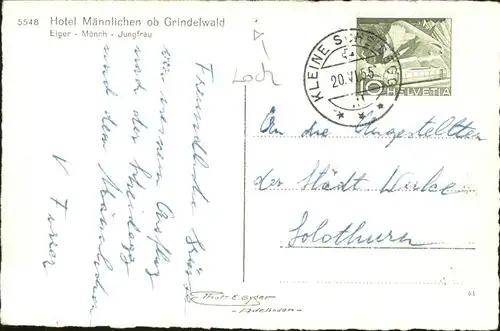 5548 Hotel Männlichen ob Grindelwald
Eiger - Mönch - Jungfrau
Loch
KLEINE SCHEIDEGG
20.VI.55
10 HELVETIA
Freundliche Grüsse
von unserem Ausflug
auf der Scheidegg
und dem Männlichen
An die Angestellten
der Städt. Werke
Solothurn
Phot. E. Gyger
Adelboden